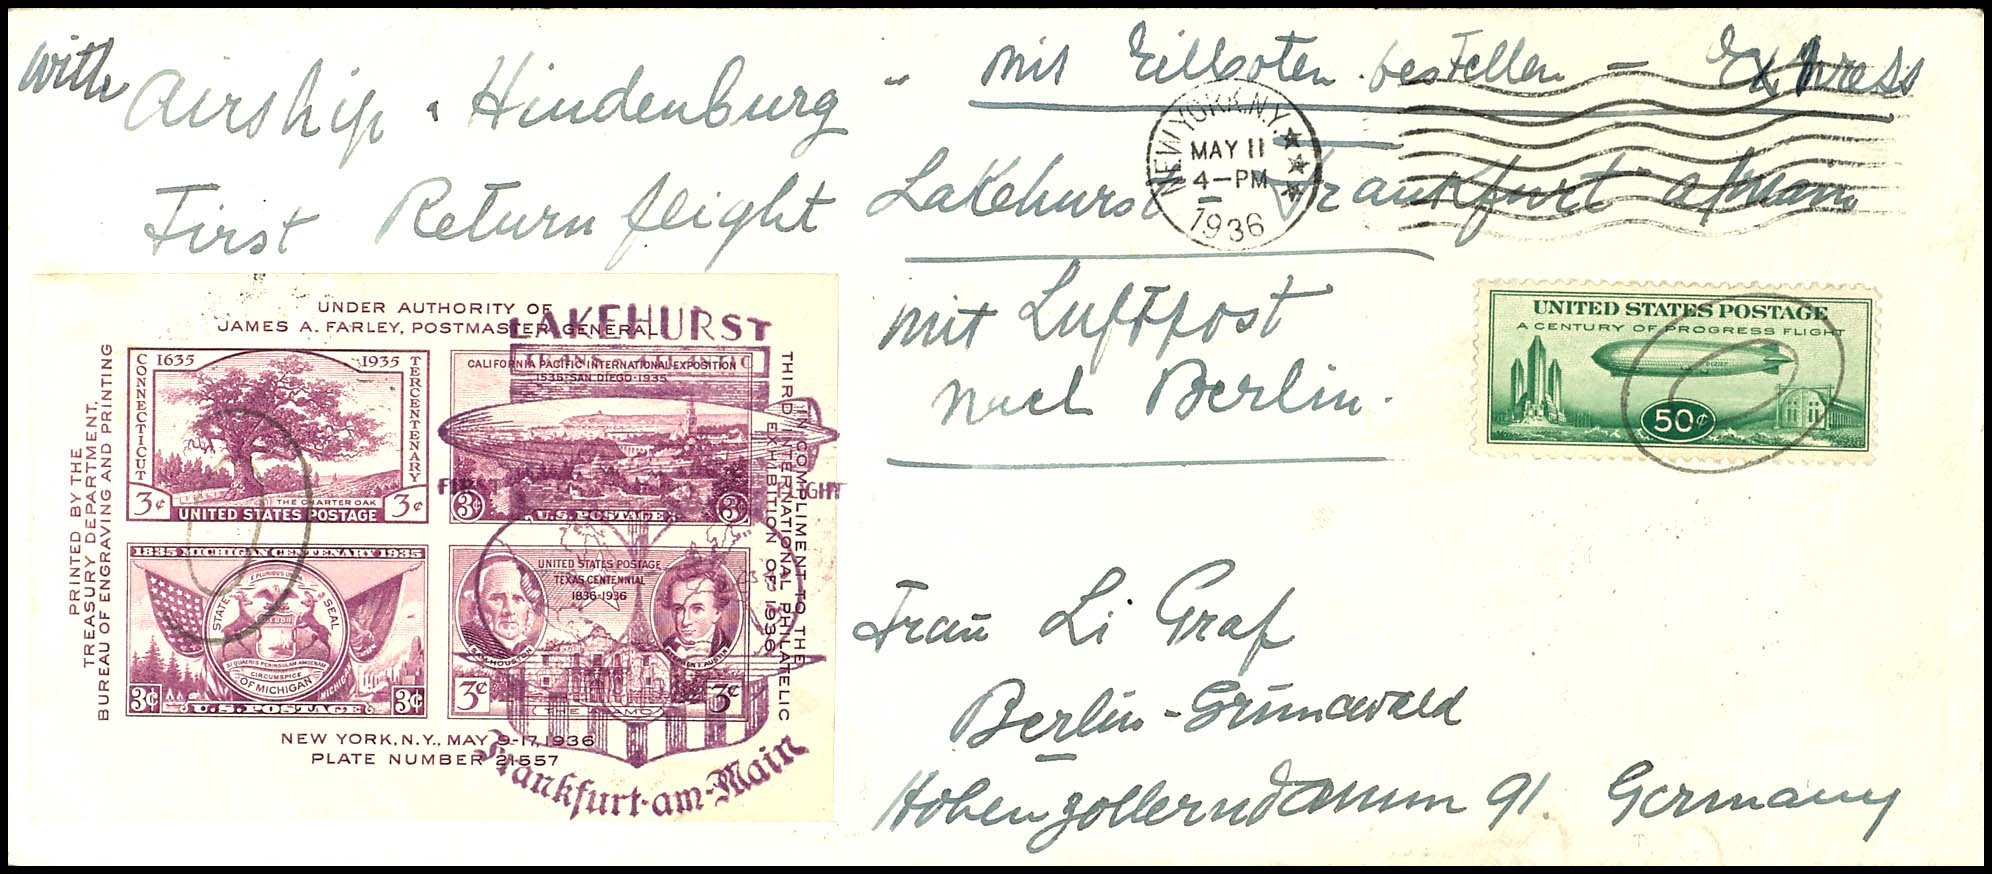 with Airship "Hindenburg" mit Eilboten bestellen – Express
First Return flight Lakehurst Frankfurt a/main
mit Luftpost
nach Berlin.
NEW YORK, N.Y.
MAY 11
4–PM
1936
UNDER AUTHORITY OF
JAMES A. FARLEY, POSTMASTER GENERAL
PRINTED BY THE
TREASURY DEPARTMENT,
BUREAU OF ENGRAVING AND PRINTING
CONNECTICUT
1635 1935
TERCENTENARY
THE CHARTER OAK
3¢ 3¢
UNITED STATES POSTAGE
CALIFORNIA PACIFIC INTERNATIONAL EXPOSITION
1535·SAN DIEGO·1935
3¢ 3¢
U.S. POSTAGE
1835 MICHIGAN CENTENARY 1935
E PLURIBUS UNUM
STATE SEAL
TUEBOR
SI QUAERIS PENINSULAM AMOENAM
CIRCUMSPICE
OF MICHIGAN
MICHIGAN
3¢ 3¢
U.S. POSTAGE
UNITED STATES POSTAGE
TEXAS CENTENNIAL
1836-1936
SAM HOUSTON
STEPHEN F. AUSTIN
3¢ 3¢
THE ALAMO
IN COMPLIMENT TO THE
THIRD INTERNATIONAL PHILATELIC
EXHIBITION OF 1936
NEW YORK, N.Y., MAY 9-17, 1936
PLATE NUMBER 21557
LAKEHURST
TRANS-ATLANTIC
FIRST FLIGHT
Frankfurt-am-Main
UNITED STATES POSTAGE
A CENTURY OF PROGRESS FLIGHT
50¢
Frau Li Graf
Berlin-Grunewald
Hohenzollerndamm 91. Germany